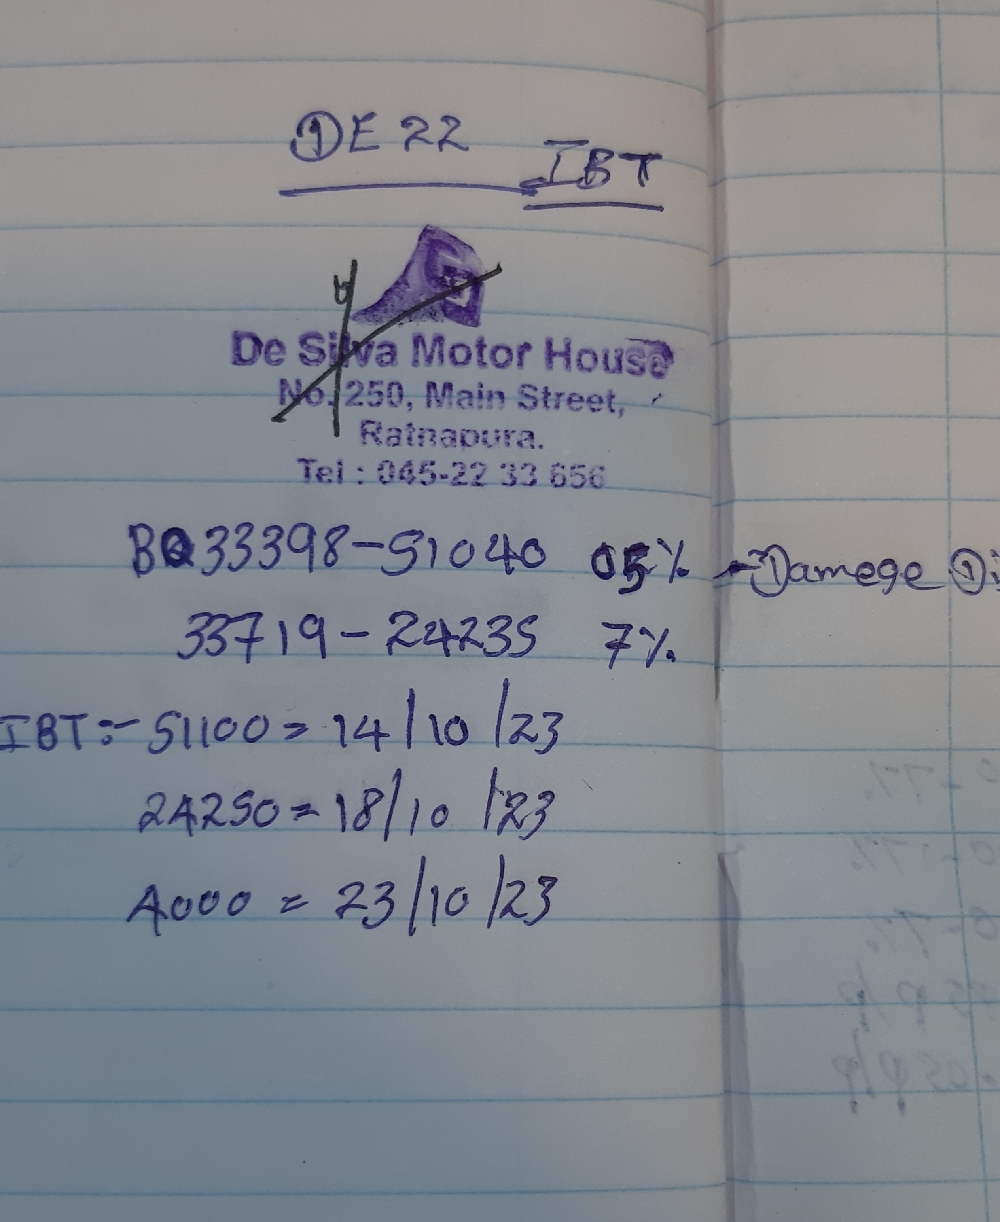 DE 22
IBT
De Silva Motor House
No. 250, Main Street,
Ratnapura.
Tel : 045-22 33 656
BQ33398-51040 05% - Damege Di
33719-24235 7%
IBT:- 51100 = 14/10/23
24250 = 18/10/23
4000 = 23/10/23